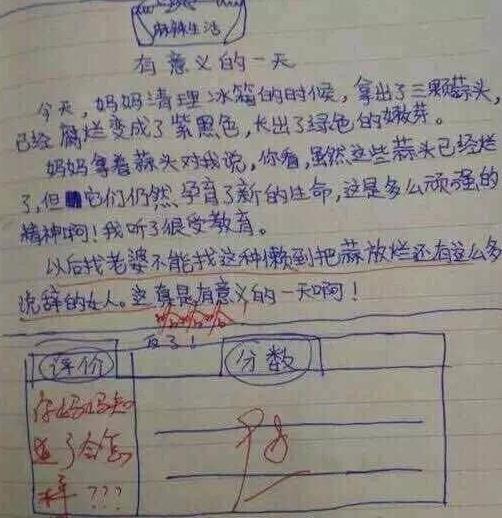 麻辣生活
有意义的一天
今天,妈妈清理冰箱的时候,拿出了三颗蒜头,
已经腐烂变成了紫黑色,长出了绿色的嫩芽。
妈妈拿着蒜头对我说,你看,虽然这些蒜头已经烂
了,但它们仍然孕育了新的生命,这是多么顽强的
精神啊!我听了很受教育。
以后找老婆不能找这种懒到把蒜放烂还有这么多
说辞的女人。这真是有意义的一天啊!
哈哈哈
评价
分数
你妈妈知
道了会怎
样???